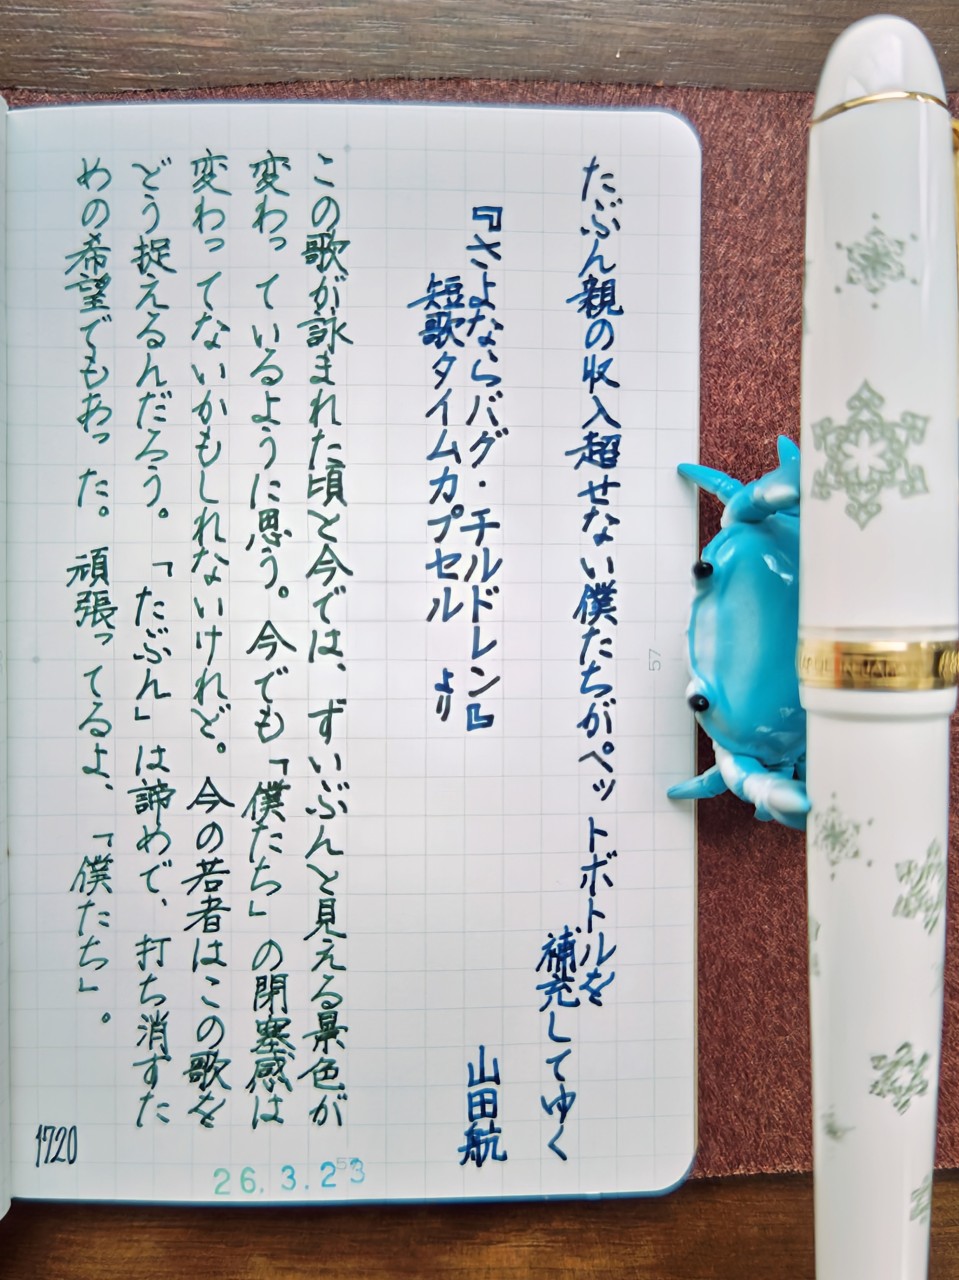 たぶん親の収入超せない僕たちがペットボトルを
補充してゆく
山田航
『さよならバグ・チルドレン』
短歌タイムカプセル より
この歌が詠まれた頃と今では、ずいぶんと見える景色が
変わっているように思う。今でも「僕たち」の閉塞感は
変わってないかもしれないけれど。今の若者はこの歌を
どう捉えるんだろう。「たぶん」は諦めで、打ち消すた
めの希望でもあった。頑張ってるよ、「僕たち」。
1720
26.3.23
57
57